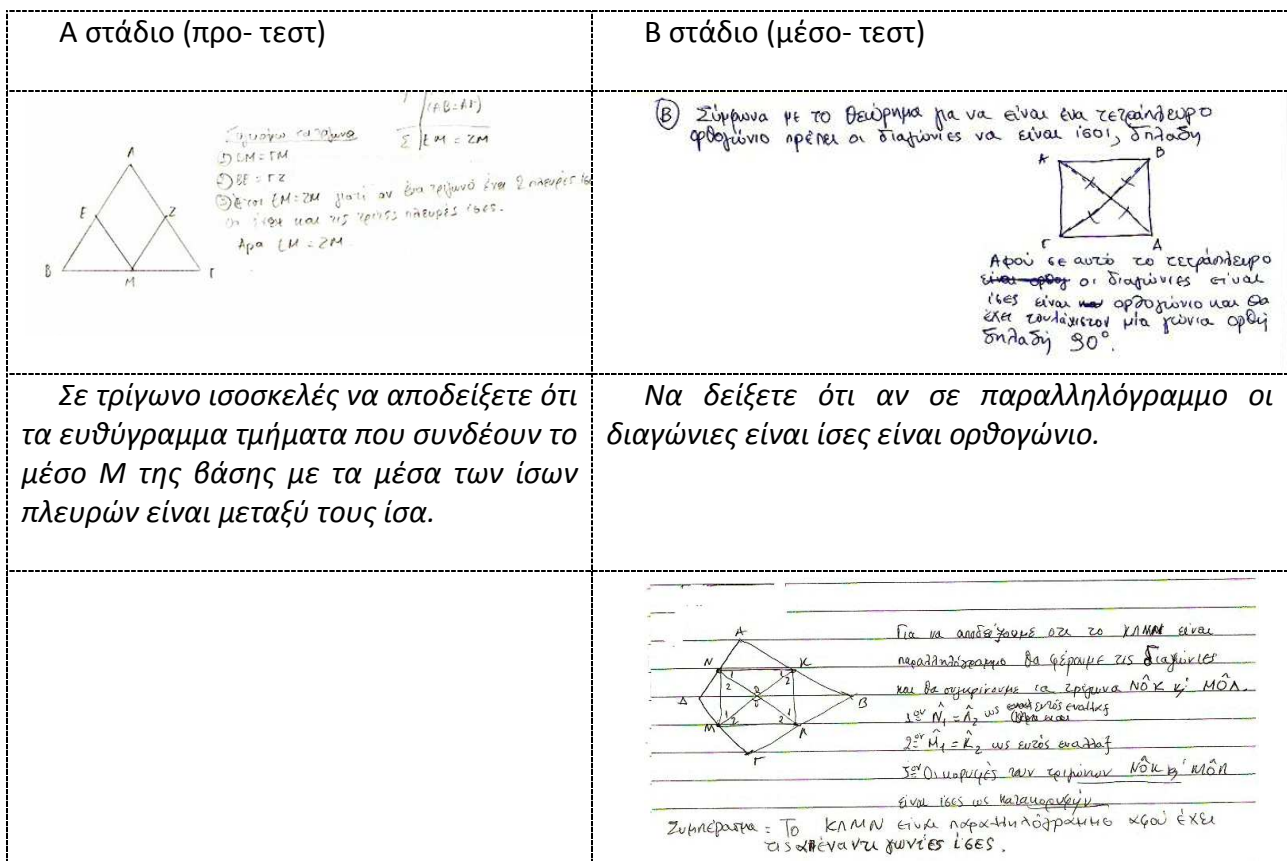 Α στάδιο (προ- τεστ)
Β στάδιο (μέσο- τεστ)
(ΑΒ=ΑΓ)
Σ | ΕΜ = ΖΜ
Συγκρίνω τα τρίγωνα
① ΒΜ=ΓΜ
② ΒΕ = ΓΖ
③ Έτσι ΕΜ=ΖΜ γιατί αν ένα τρίγωνο έχει 2 πλευρές ίσες
θα έχει και τις τρίτες πλευρές ίσες.
Άρα ΕΜ = ΖΜ.
Α
Ε Ζ
Β Μ Γ
Β Σύμφωνα με το θεώρημα για να είναι ένα τετράπλευρο
ορθογώνιο πρέπει οι διαγώνιες να είναι ίσοι, δηλαδή
Α Β
Γ Δ
Αφού σε αυτό το τετράπλευρο
οι διαγώνιες είναι
ίσες είναι ορθογώνιο και θα
έχει τουλάχιστον μία γωνία ορθή
δηλαδή 90°.
Σε τρίγωνο ισοσκελές να αποδείξετε ότι
τα ευθύγραμμα τμήματα που συνδέουν το
μέσο Μ της βάσης με τα μέσα των ίσων
πλευρών είναι μεταξύ τους ίσα.
Να δείξετε ότι αν σε παραλληλόγραμμο οι
διαγώνιες είναι ίσες είναι ορθογώνιο.
Α
Ν 1 2 1 2 Κ
Δ Ο Β
Μ 1 2 1 2 Λ
Γ
Για να αποδείξουμε οτι το ΚΛΜΝ είναι
παραλληλόγραμμο θα φέρουμε τις διαγώνιες
και θα συγκρίνουμε τα τρίγωνα ΝÔΚ κ' ΜÔΛ.
1ον Ν̂₁ = Λ̂₂ ως εντός εναλλαξ
2ον Μ̂₁ = Κ̂₂ ως εντός εναλλαξ
3ον Οι κορυφές των τριγώνων ΝÔΚ κ' ΜÔΛ
είναι ίσες ως κατακορυφήν
Συμπέρασμα = Το ΚΛΜΝ είναι παραλληλόγραμμο αφού έχει
τις απέναντι γωνίες ίσες.